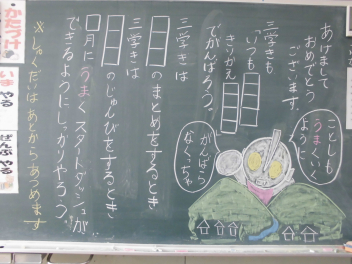 あけまして
おめでとう
ございます。
三学きも
「いつも
きりかえ□□□□」
でがんばろう。
三学きは
□□□のまとめをするとき
三学きは
□□□のじゅんびをするとき
□月にうまくスタートダッシュが
できるようにしっかりやろう。
※しゅくだいはあとからあつめます
ことしも
うまくいく
ように
がんばら
なくっちゃ
かたづけ
いま
やる
ぜんぶ
やる